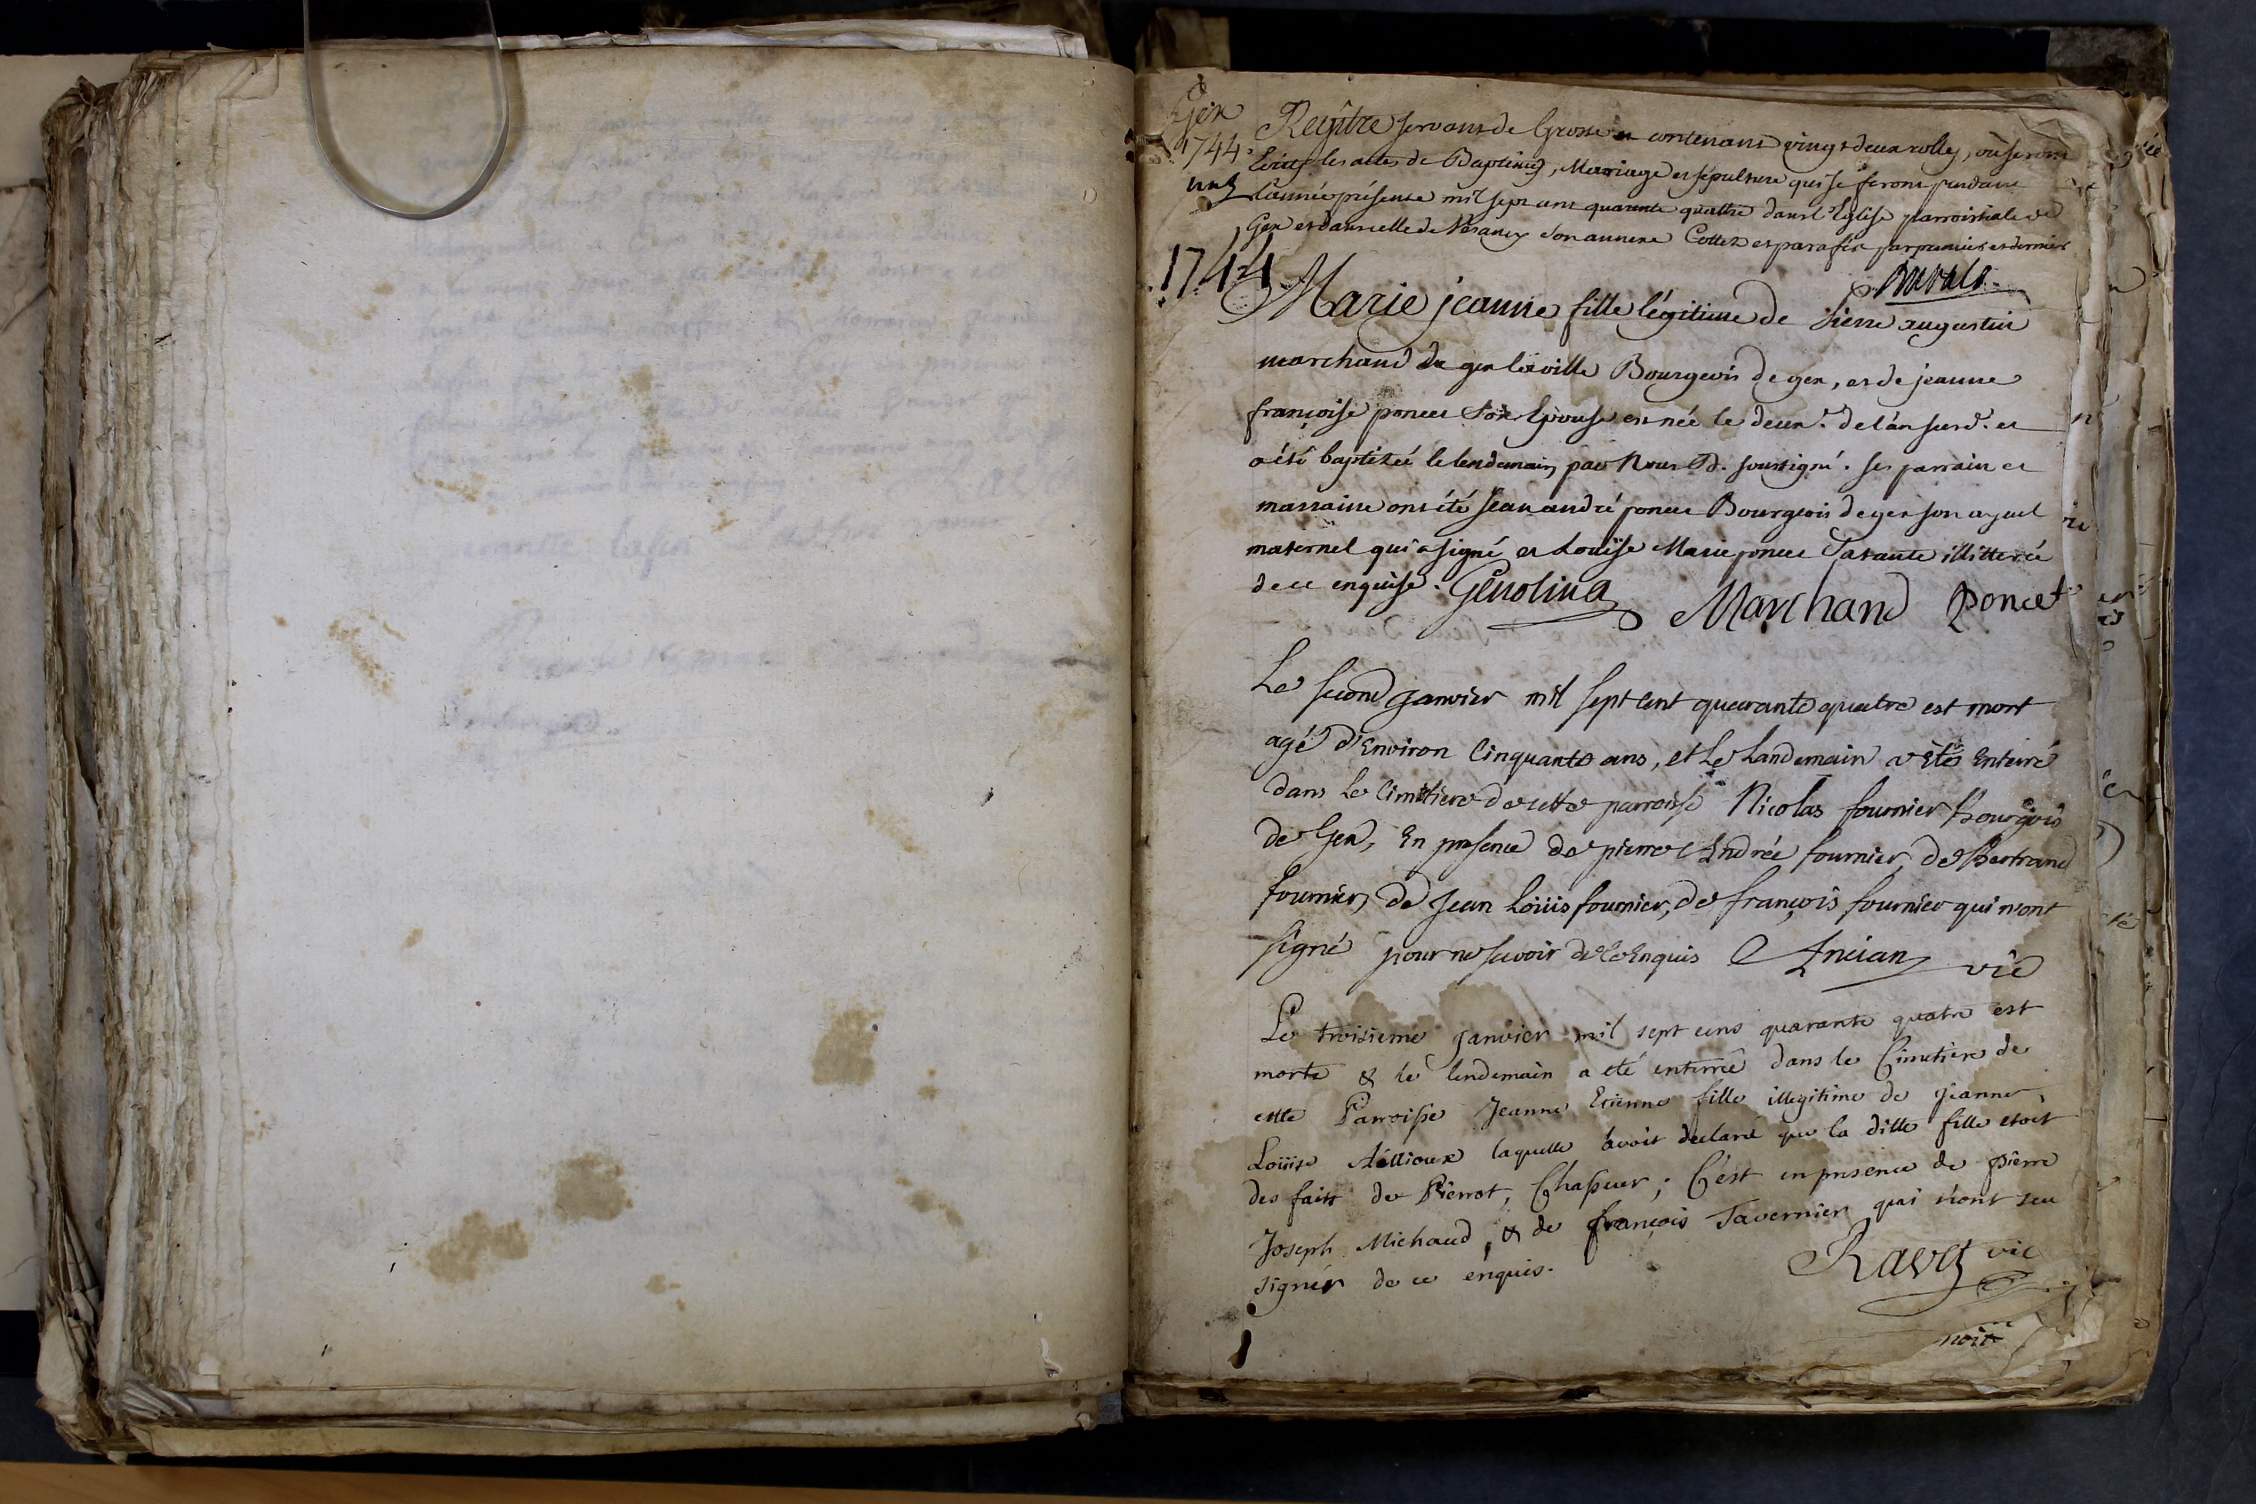 Gex
1744
un
Regître servant de Grosse contenant vingt deux rolles, où seront
Ecrits les actes de Baptêmes, Mariage et sépulture qui se feront pendant
l'année présente mil sept cent quarante quattre dans l'Eglise parroissiale de
Gex et dans celle de Vesancy son annexe Cottez et parafés par premier et dernier
1744
Marie jeanne fille légitime de pierre augustin
marchand de gex la ville Bourgeois de gex, et de jeanne
françoise poncet son Epouse est née le deux. de l'an susd. et
a été baptizée le lendemain par Nous soussigné. ses parrain et
marraine ont été jean andré poncet Bourgeois de gex son ayeul
maternel qui a signé et Louïse Marie poncet sa tante illitterée
de ce enquise. Genolin Marchand Poncet
Le second janvier mil sept cent quarante quatre est mort
agé d'Environ Cinquante ans, et Le Landemain a Eté Enterré
dans Le Cimetiere de cette parroisse Nicolas fournier Bourgeois
de Gex, En presence de pierre André fournier, de Bertrand
fournier, de Jean Loüis fournier, de françois fournier qui n'ont
signé pour ne scavoir de ce Enquis Ancian vic
Le troisieme janvier mil sept cens quarante quatre est
morte & le lendemain a eté enterrée dans le Cimetiere de
cette Parroisse Jeanne Etienne fille illegitime de jeanne
Loüise laquelle avoit declaré que la ditte fille etoit
des faits de Pierrot, Chapuer; C'est en presence de pierre
Joseph Michaud, & de françois Tavernier qui n'ont seu
signer de ce enquis.
Ravy vic